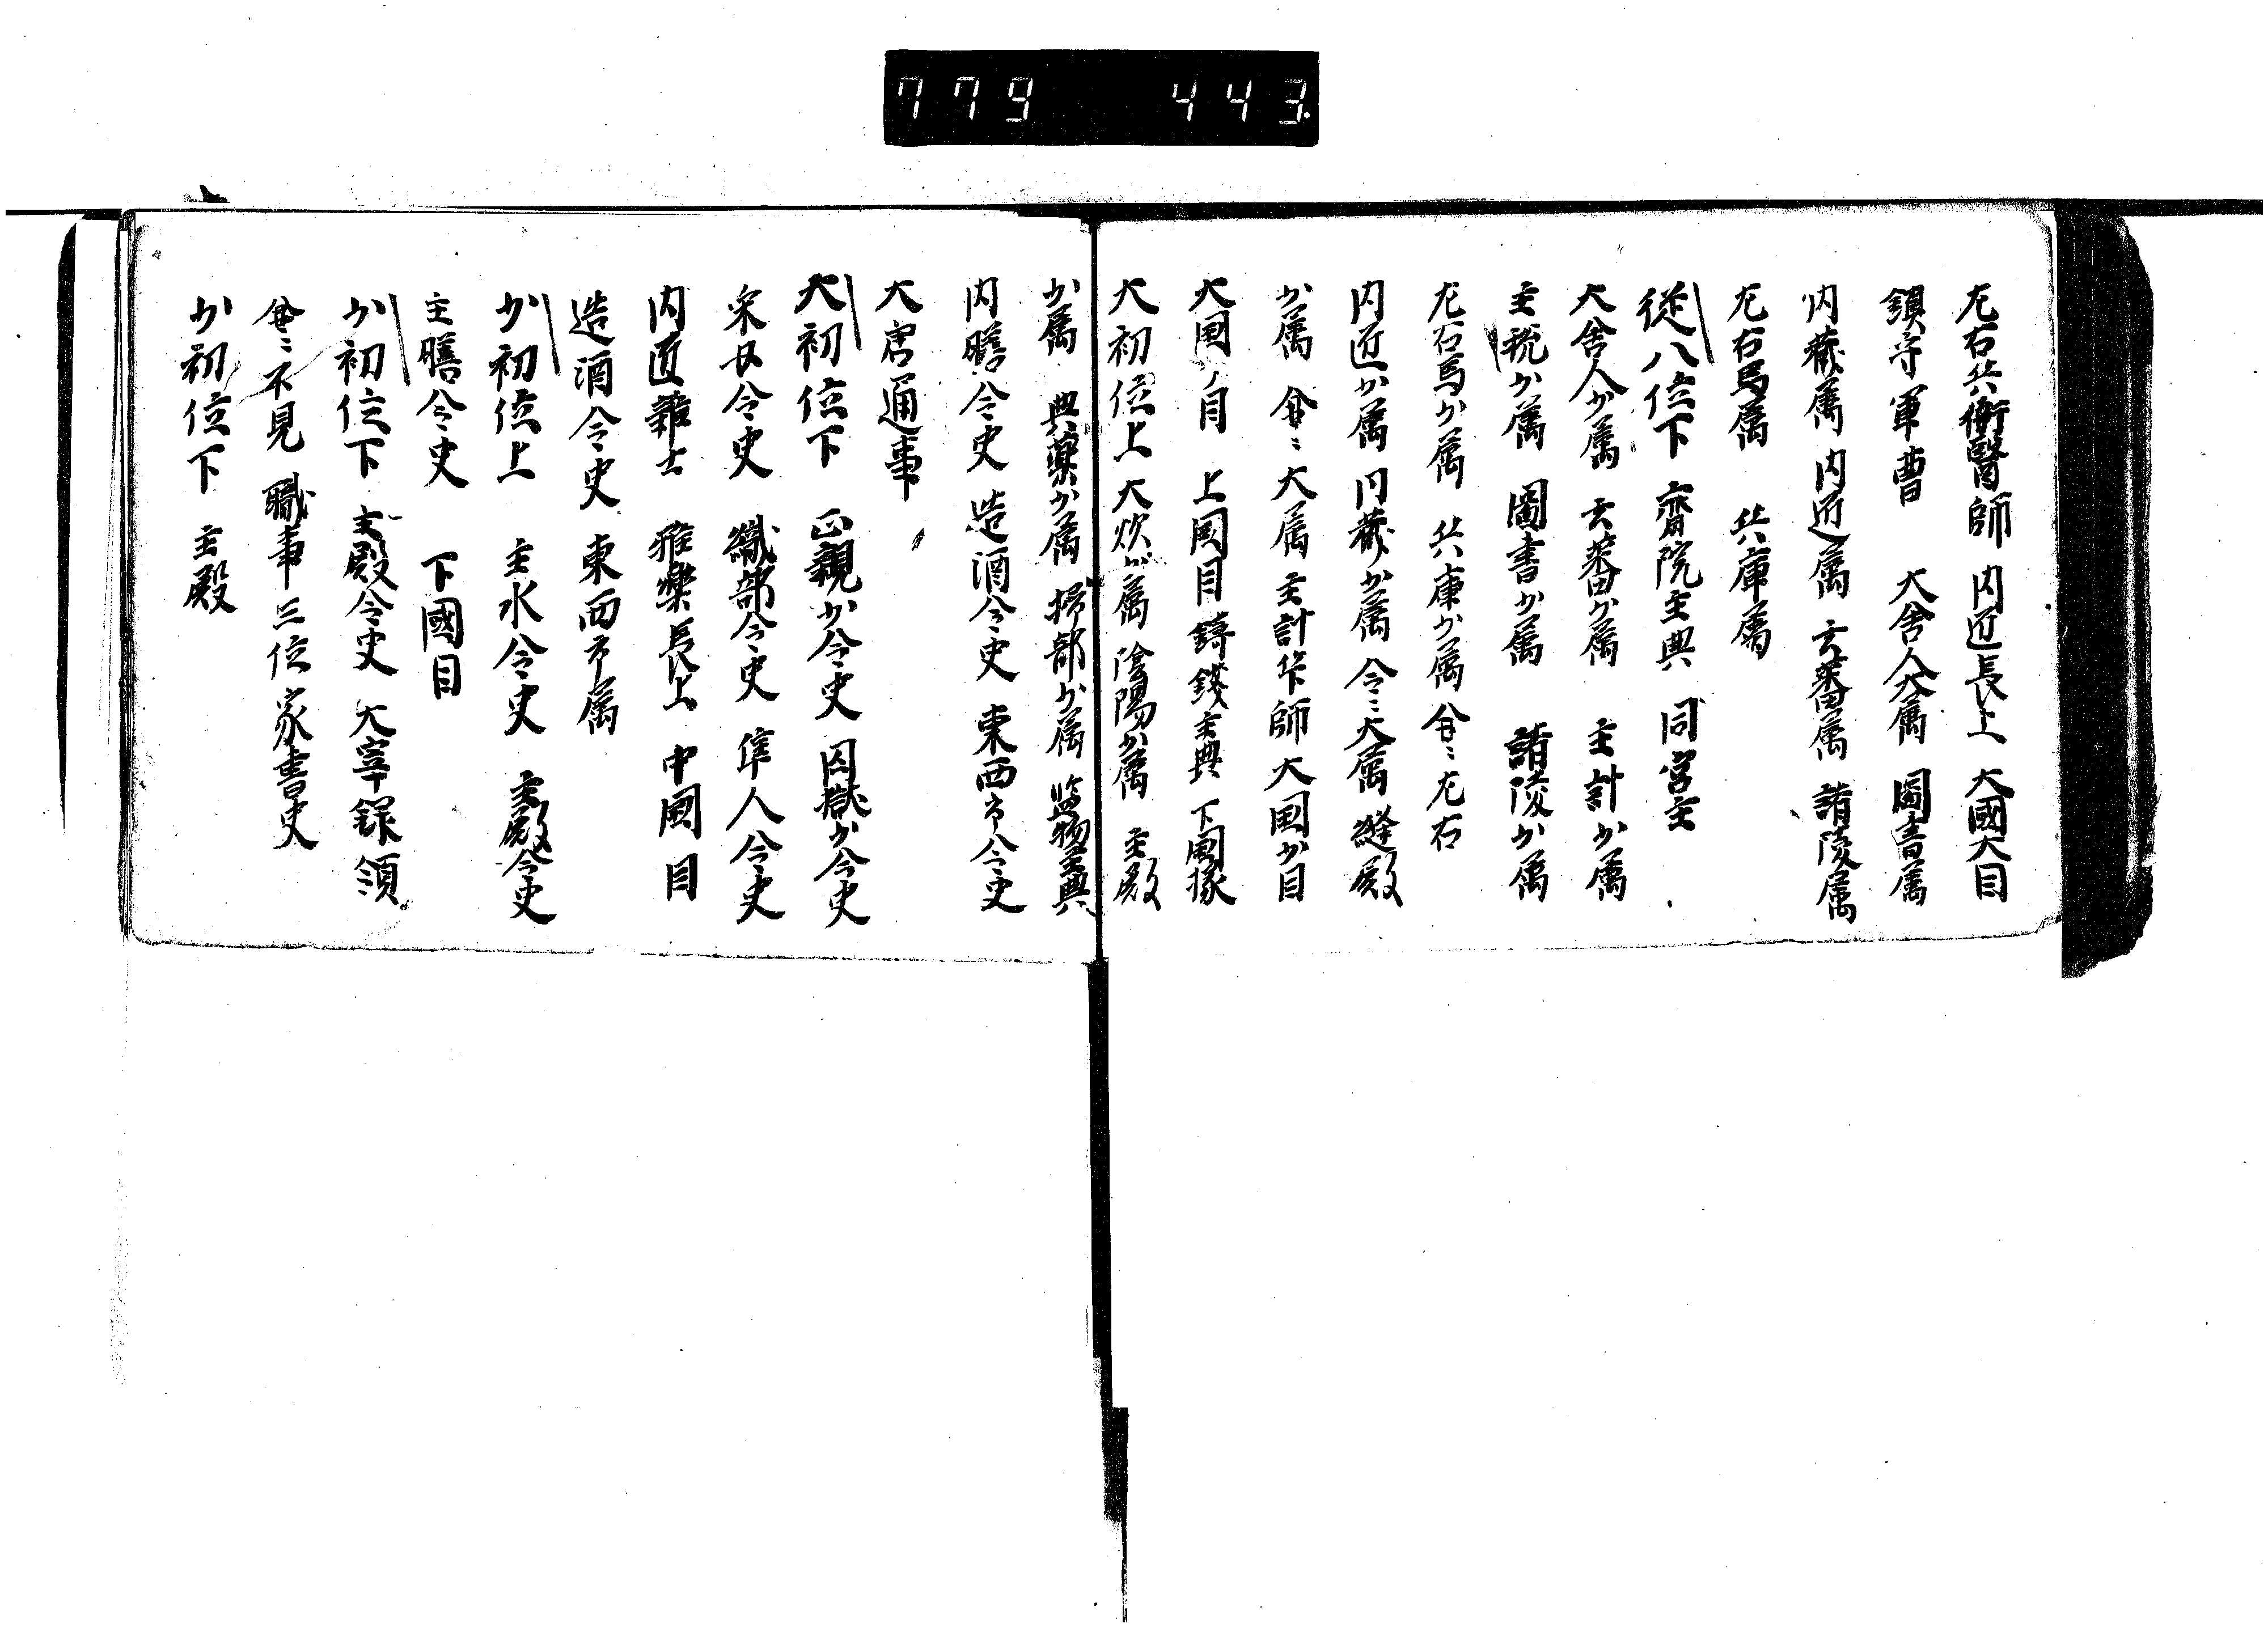 779 443
左右兵衛醫師 内匠長上 大國大目
鎮守軍曹 大舎人大属 圖書属
内蔵属 内匠属 玄蕃属 諸陵属
左右馬属 兵庫属
従八位下 齋院主典 同宮主
大舎人少属 玄蕃少属 主計少属
主税少属 圖書少属 諸陵少属
左右馬少属 兵庫少属 左右
内匠少属 内蔵少属 令〻大属 縫殿
少属 大属 主計笇師 大国少目
大国目 上国目 鋳銭主典 下国掾
大初位上 大炊少属 陰陽少属 主殿
少属 典薬少属 掃部少属 監物主典
内膳令史 造酒令史 東西市令史
大唐通事
大初位下 正親少令史 囚獄少令史
采女令史 織部令史 隼人令史
内匠雜士 雅樂長上 中国目
造酒令史 東西市属
少初位上 主水令史 主殿令史
主膳令史 下國目
少初位下 主殿令史 大宰録領
不見 職事三位家書史
少初位下 主殿